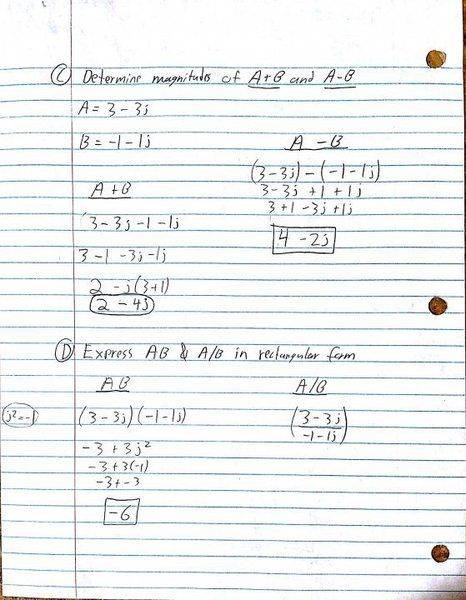 (C) Determine magnitudes of A+B and A-B
A = 3 - 3j
B = -1 - 1j
A + B
3 - 3j - 1 - 1j
3 - 1 - 3j - 1j
2 - j(3+1)
2 - 4j
A - B
(3 - 3j) - (-1 - 1j)
3 - 3j + 1 + 1j
3 + 1 - 3j + 1j
4 - 2j
(D) Express AB & A/B in rectangular form
AB
j² = -1
(3 - 3j)(-1 - 1j)
-3 + 3j²
-3 + 3(-1)
-3 + -3
-6
A/B
(3 - 3j / -1 - 1j)